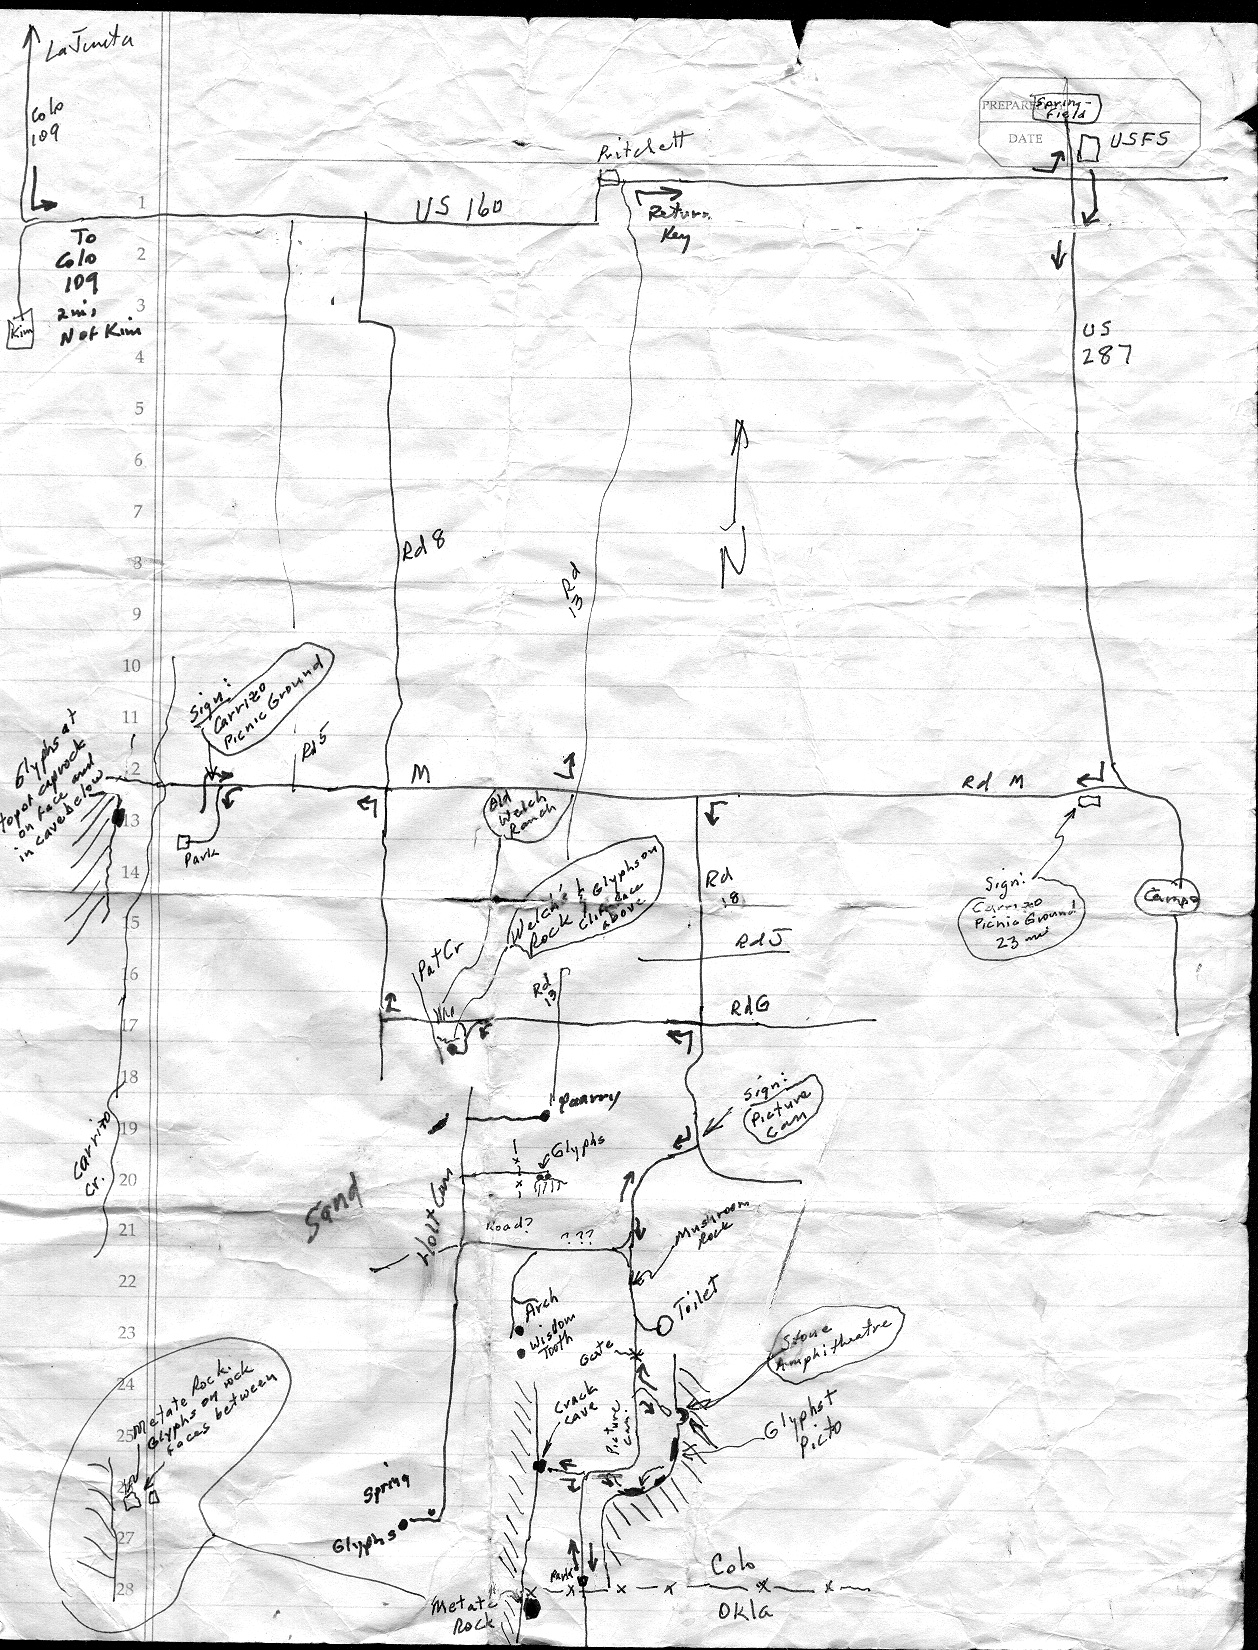 La Junta
Colo
109
PREPARE
Spring-
Field
DATE
USFS
Pritchett
US 160
Return
Key
To
Colo
109
2 mi
N of Kim
Kim
US
287
N
Rd 8
Rd
13
Sign:
Carrizo
Picnic Ground
Rd 5
Glyphs at
top of caprock
on face and
in cave below
M
Rd M
Park
Old
Welch
Ranch
Welch's
Rock &
Glyphs on
Cliff face
above
Rd
18
Rd J
Sign:
Carrizo
Picnic Ground
23 mi
Campo
Pat Cr
Rd
13
Rd G
Sign:
Picture
Can
Quarry
Glyphs
Carrizo
Cr.
Sand
Holt Can
Road?
???
Mushroom
Rock
Arch
Wisdom
Tooth
Toilet
Gate
Stone
Amphitheatre
Crack
Cave
Picture
Can.
Glyphs +
Picto
Metate Rock.
Glyphs on rock
faces between
Spring
Glyphs
Park
Colo
Okla
Metate
Rock
1
2
3
4
5
6
7
8
9
10
11
12
13
14
15
16
17
18
19
20
21
22
23
24
25
26
27
28